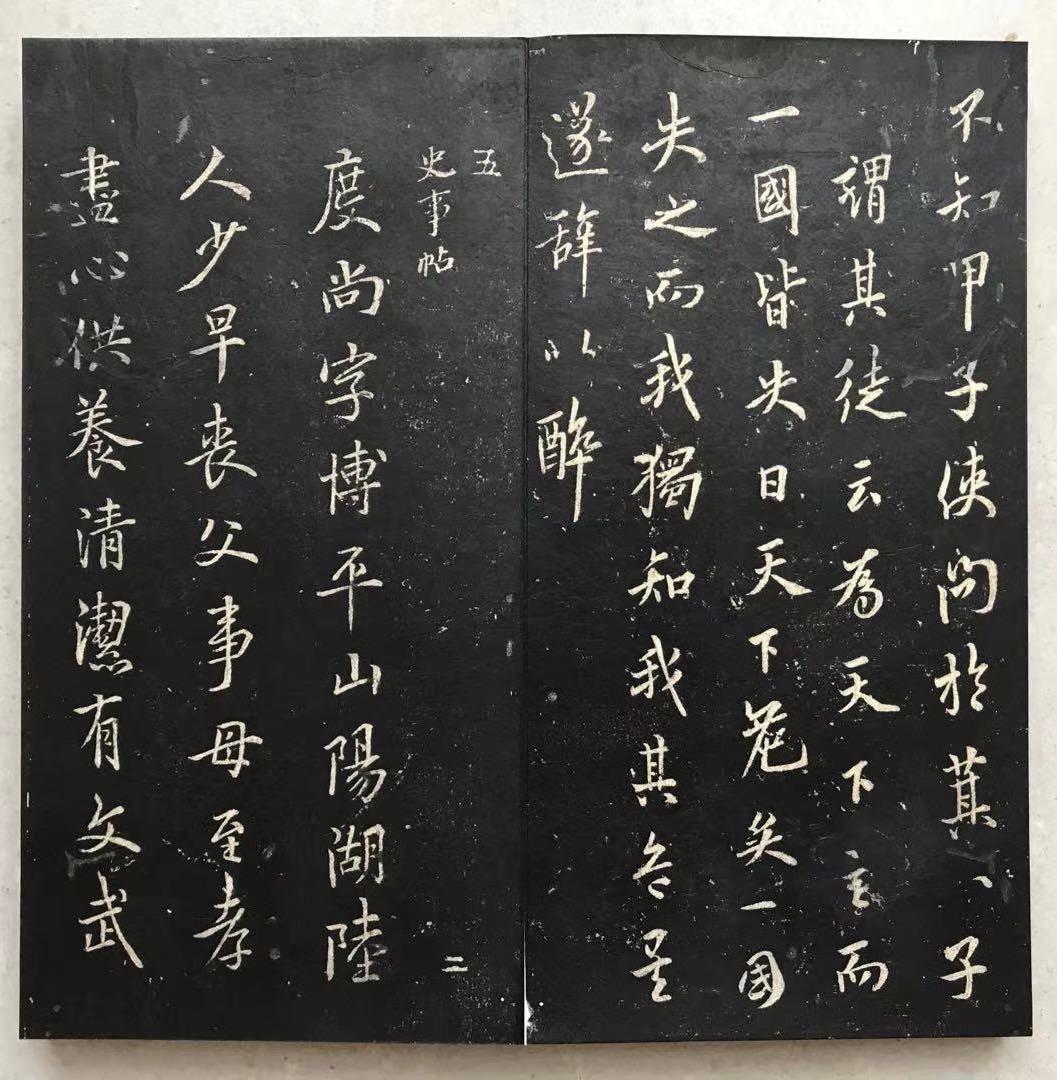 不知甲子使問於箕、子
謂其徒云為天下主而
一國皆失日天下危矣一国
失之而我獨知我其
遂辭以醉
五
史事帖
二
度尚字博平山陽湖陸
人少早喪父事母至孝
盡心供養清潔有文武